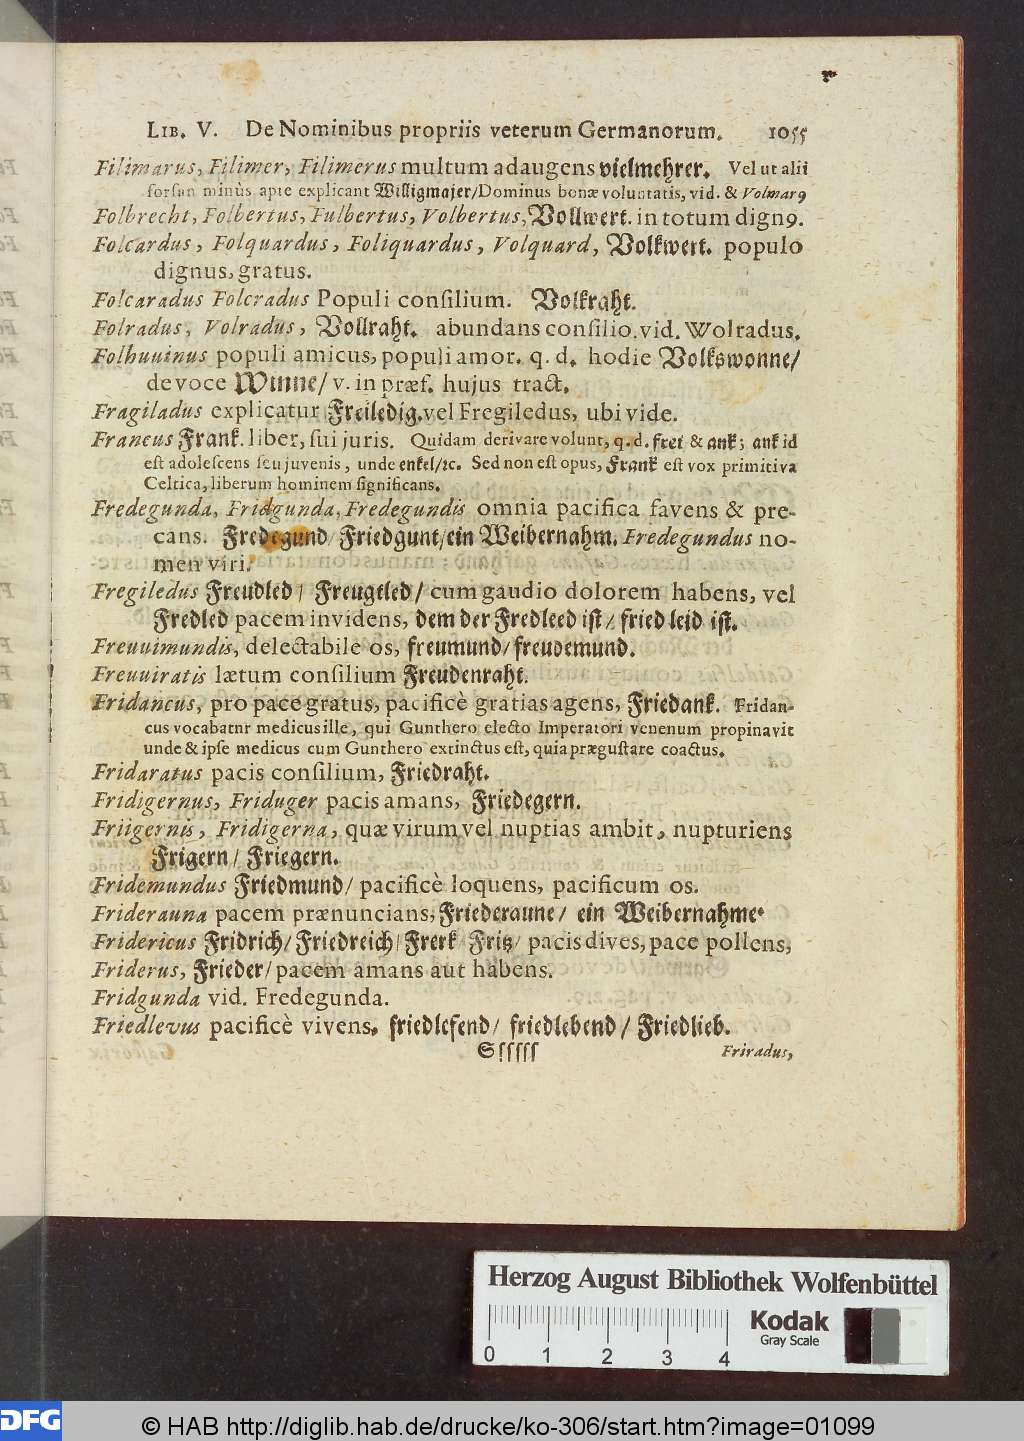 LIB. V. De Nominibus propriis veterum Germanorum. 1055
Filimarus, Filimer, Filimerus multum adaugens vielmehrer. Vel ut alii
forsan minùs apte explicant Willigmajer/Dominus bonæ voluntatis, vid. & Volmarꝰ
Folbrecht, Folbertus, Fulbertus, Volbertus, Vollwert. in totum dignꝰ.
Folcardus, Folquardus, Foliquardus, Volquard, Volkwert. populo
dignus, gratus.
Folcaradus Folcradus Populi consilium. Volkraht.
Folradus, Volradus, Vollraht. abundans consilio. vid. Wolradus.
Folhuuinus populi amicus, populi amor. q. d. hodie Volkswonne/
de voce Winne/ v. in præf. hujus tract.
Fragiladus explicatur Freiledig. vel Fregiledus, ubi vide.
Francus Frank. liber, sui juris. Quidam derivare volunt, q. d. frei & ank; ank id
est adolescens seu juvenis, unde enkel/ꝛc. Sed non est opus, Frank est vox primitiva
Celtica, liberum hominem significans.
Fredegunda, Fridgunda, Fredegundis omnia pacifica favens & pre-
cans. Fredegund/ Friedgunt/ein Weibernahm. Fredegundus no-
men viri.
Fregiledus Freudled/ Freugtled/ cum gaudio dolorem habens, vel
Fredled pacem invidens, dem der Fredleed ist/ fried leid ist.
Freuuimundis, delectabile os, freumund/freudemund.
Freuuiratis lætum consilium Freudenraht.
Fridancus, pro pace gratus, pacificè gratias agens, Friedank. Fridan-
cus vocabatnr medicus ille, qui Gunthero electo Imperatori venenum propinavit
unde & ipse medicus cum Gunthero extinctus est, quia prægustare coactus.
Fridaratus pacis consilium, Friedraht.
Fridigernus, Friduger pacis amans, Friedegern.
Friigernis, Fridigerna, quæ virum vel nuptias ambit, nupturiens
Frigern/ Friegern.
Fridemundus Friedmund/ pacificè loquens, pacificum os.
Friderauna pacem prænuncians, Friederaune/ ein Weibernahme.
Fridericus Fridrich/ Friedreich/ Frerk/ Fritz/ pacis dives, pace pollens,
Friderus, Frieder/ pacem amans aut habens.
Fridgunda vid. Fredegunda.
Friedlevus pacificè vivens, friedlefend/ friedlebend/ Friedlieb.
Sſſſſſ Friradus,
Herzog August Bibliothek Wolfenbüttel
Kodak
Gray Scale
0 1 2 3 4
DFG © HAB http://diglib.hab.de/drucke/ko-306/start.htm?image=01099